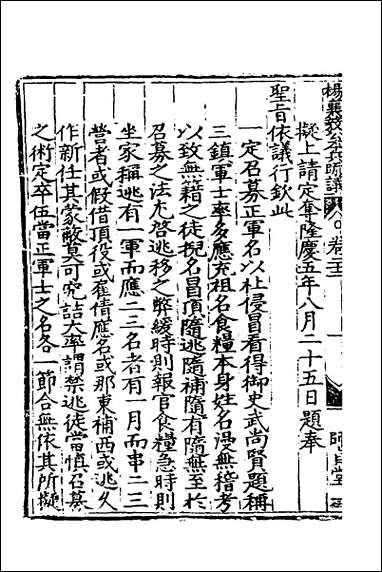 楊襄毅公兵疏議 卷二十五
擬上請定奪隆慶五年八月二十五日題奉
聖旨依議行欽此
一定名募正軍名以杜侵冒看得御史武尚賢題稱
三鎮軍士率多應充祖名食糧本身姓名漫無稽考
以致無籍之徒捏名冒頂隨逃隨補隨有隨無至於
召募之法尤啓逃移之弊緩時則報官食糧急時則
坐家稱逃有一軍而應二三名者有一月而串二三
營者或假借頂役或雇倩應名或那東補西或逃久
作新任其蒙蔽莫可究詰大率謂禁逃徒當慎召募
之術定卒伍當正軍士之名各一節合無依其所擬